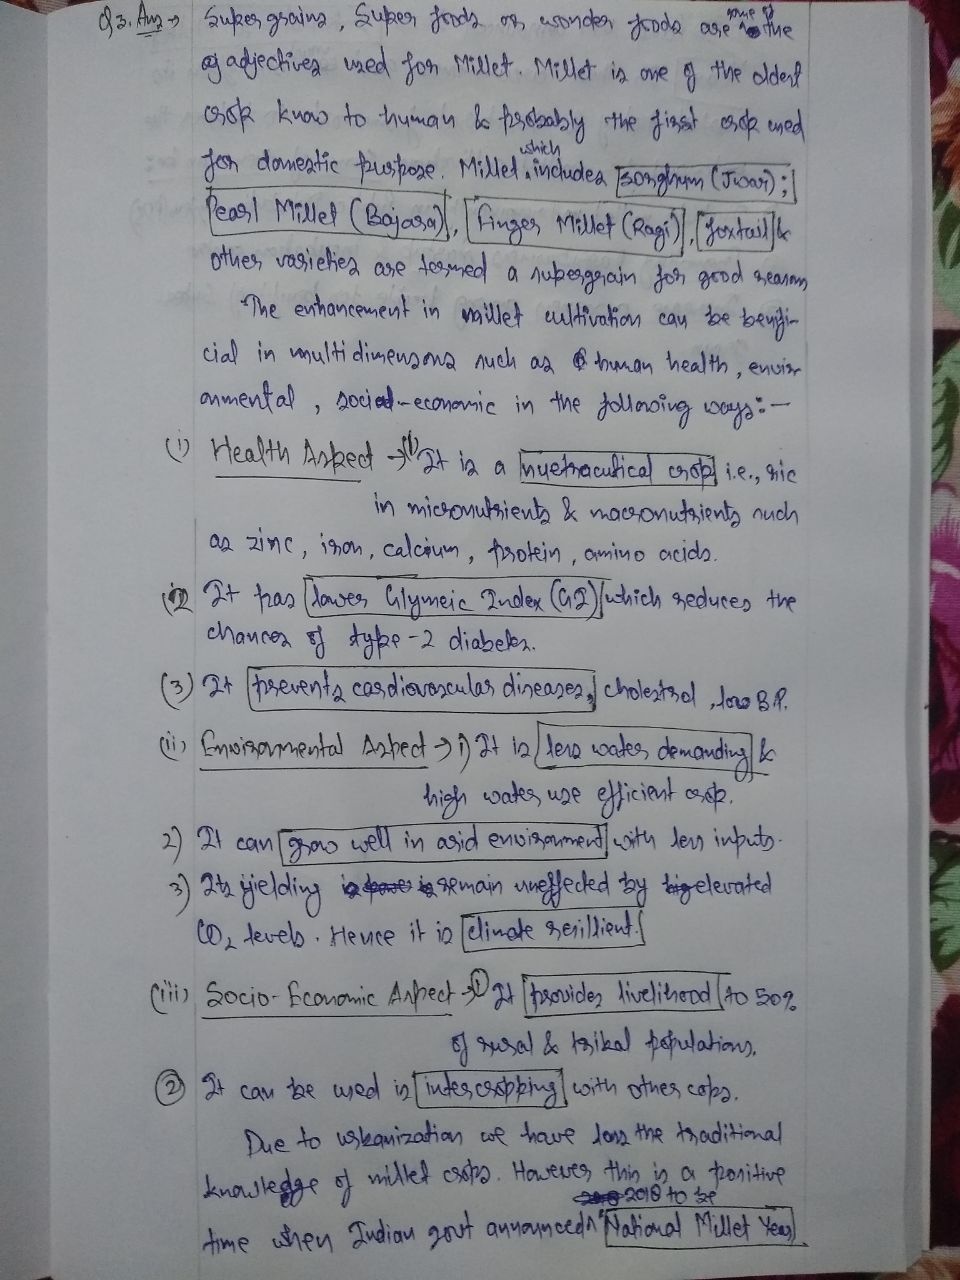 Q3. Ans → Super grains, Super foods or wonder foods are some of the
adjectives used for Millet. Millet is one of the oldest
crop know to human & probably the first crop used
for domestic purpose. Millet which includes songhum (Jwar);
Pearl Millet (Bajara), Finger Millet (Ragi), foxtail &
other varieties are termed a supergrain for good reasons
The enhancement in millet cultivation can be benifi-
cial in multidimensons such as human health, envir
onmental, socio-economic in the following ways:-
(i) Health Aspect → (1) It is a nuetracutical crop i.e., ric
in micronutrients & macronutrients such
as zinc, iron, calcium, protein, amino acids.
(2) It has lower Glymeic Index (GI) which reduces the
chances of type-2 diabetes.
(3) It prevents cardiovascular diseases, cholestrol, low B.P.
(ii) Environmental Aspect → 1) It is less water demanding &
high water use efficient crop.
2) It can grow well in arid environment with less inputs.
3) Its yielding remain uneffected by elevated
CO2 levels. Hence it is climate resillient.
(iii) Socio-Economic Aspect → (1) It provides livelihood to 50%
of rural & tribal populations.
(2) It can be used in intercropping with other cops.
Due to urbanization we have loss the traditional
knowledge of millet crops. However this is a positive
time when Indian govt announced 2018 to be "National Millet Year